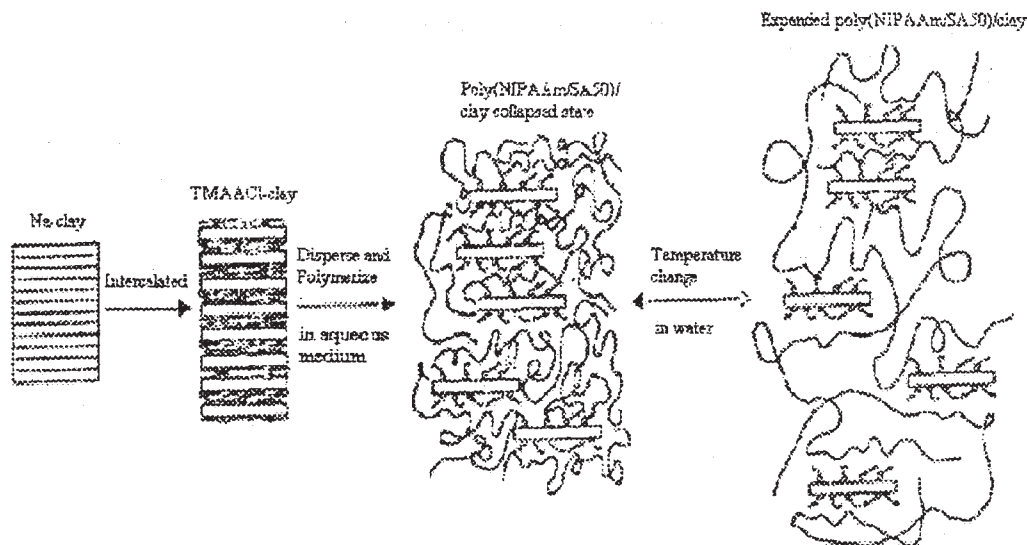 Expanded poly(NIPAAm/SA50)/clay
Poly(NIPAAm/SA50)/
clay collapsed state
TMAACl-clay
Na-clay
Intercalated
Disperse and
Polymerize
in aqueous
medium
Temperature
change
in water